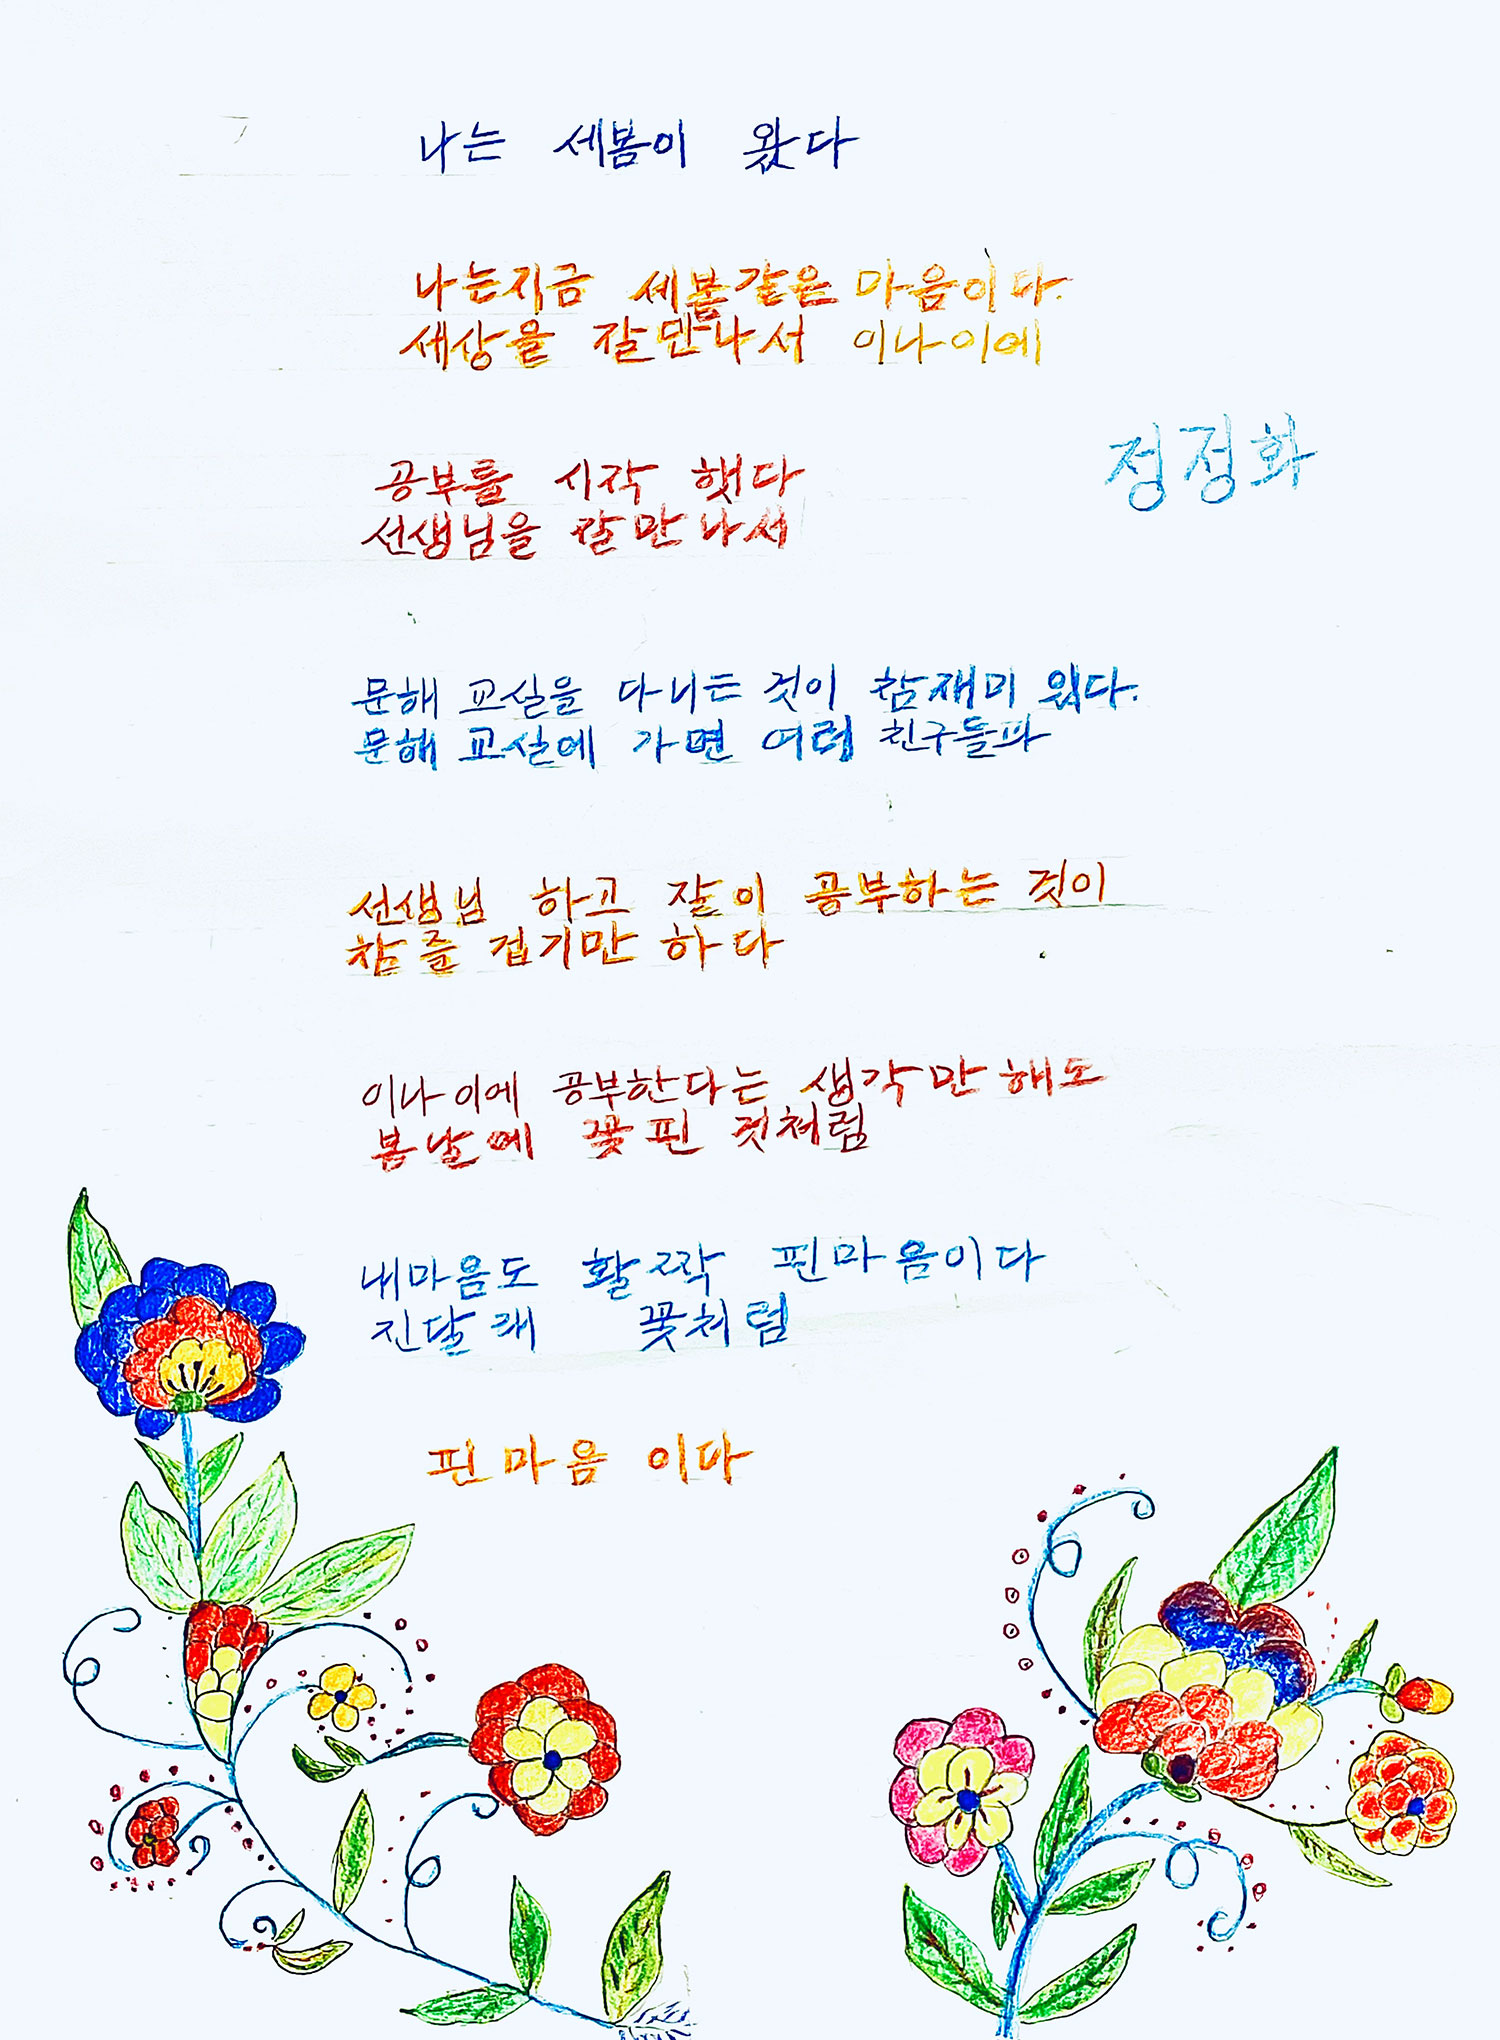 나는 세봄이 왔다
나는지금 세봄같은 마음이다.
세상을 잘만나서 이나이에
정정화
공부를 시작 햇다
선생님을 잘만나서
문해 교실을 다니는 것이 참재미 있다.
문해 교실에 가면 여러 친구들과
선생님 하고 잘이 공부하는 것이
참 즐 겁기만 하다
이나이에 공부한다는 생각만해도
봄날에 꽃핀 것처럼
내마음도 활짝 핀마음이다
진달래 꽃처럼
핀마음 이다